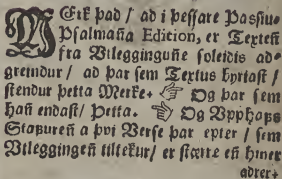 MErk þad / ad i þessare Passiu-
Psalmaña Edicion, er Texteñ
fra Utleggingune soleidis ad-
greindur / ad þar sem Textus byriast /
stendur þetta Merke. ☞ Og þar sem
hañ endast / Þetta. ☜ Og Upphafs
Stafureñ a þvi Verse þar epter / sem
Utleggingeñ tiltekur / er stærre eñ hiner
adrer.